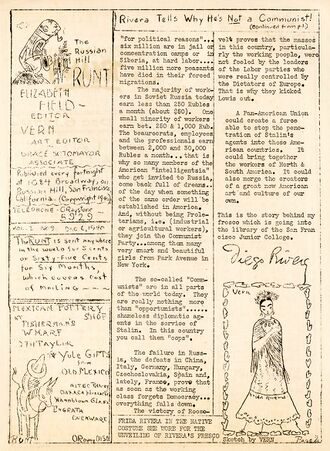 Rivera Tells Why He's Not a Communist!
(continued from p.1)
The
Russian
Hill
RUNT
ELIZABETH
FIELD-
EDITOR
VERN
ART EDITOR
GRACE XTOMAYOR
ASSOCIATE
Published every fortnight
at 1034 Broadway on
Russian Hill, San Francisco,
California. (Copyright 1940)
TELEPHONE
5929
VOL. 2 NO 9 DEC 6, 1940
The RUNT is sent anywhere
in the world for 5 cents
or Sixty-Five Cents
for Six Months,
which covers cost
of mailing
MEXICAN POTTERY
SHOP
FISHERMAN'S
WHARF
277 TAYLOR
Yule Gifts
from
Old Mexico
"for political reasons"...
six million are in jail or
concentration camps or in
Siberia, at hard labor...
five million more peasants
have died in their forced
migrations.
The majority of work-
ers in Soviet Russia today
earn less than 250 Rubles
a month (about $60). A
small minority of workers
earn bet. 250 & 1,000 Rub.
The beaurocrats, employees
and the professionals earn
between 2,000 and 30,000
Rubles a month... that is
why so many members of the
American "intelligentsia"
who get invited to Russia,
come back full of dreams..
of the day when something
of the same order will be
established in America.
And, without being Prole-
tarians, i.e. (industrial
or agricultural workers,)
they join the Communist
Party...among them many
very smart and beautiful
girls from Park Avenue in
New York.
The so-called "Comm-
unists" are in all parts
of the world today. They
are really nothing more
than "opportunists"......
shameless diplomatic ag-
ents in the service of
Stalin. In this country
you call them "cops".
The failure in Russ-
ia, the defeats in China,
Italy, Germany, Hungary,
Czechoslovakia, Spain and,
lately, France, prove that
as soon as the working
class forgets Democracy...
everything falls down.
The victory of Roose-
FRIDA RIVERA IN THE NATIVE
COSTUME SHE WORE FOR THE
UNVEILING OF RIVERA'S FRESCO
velt proves that the masses
in this country, particular-
ly the working people, were
not fooled by the leaders
of the Labor parties who
were really controlled by
the Dictators of Europe.
That is why they kicked
Lewis out.
A Pan-American Union
could create a force
able to stop the pene-
tration of Stalin's
agents into these Am-
erican countries. It
could bring together
the workers of North &
South America. It could
also merge the creators
of a great new American
art and culture of our
own.
This is the story behind my
fresco which is going into
the library of the San Fran
cisco Junior College.
Diego Rivera
Vern
Sketch by VERN